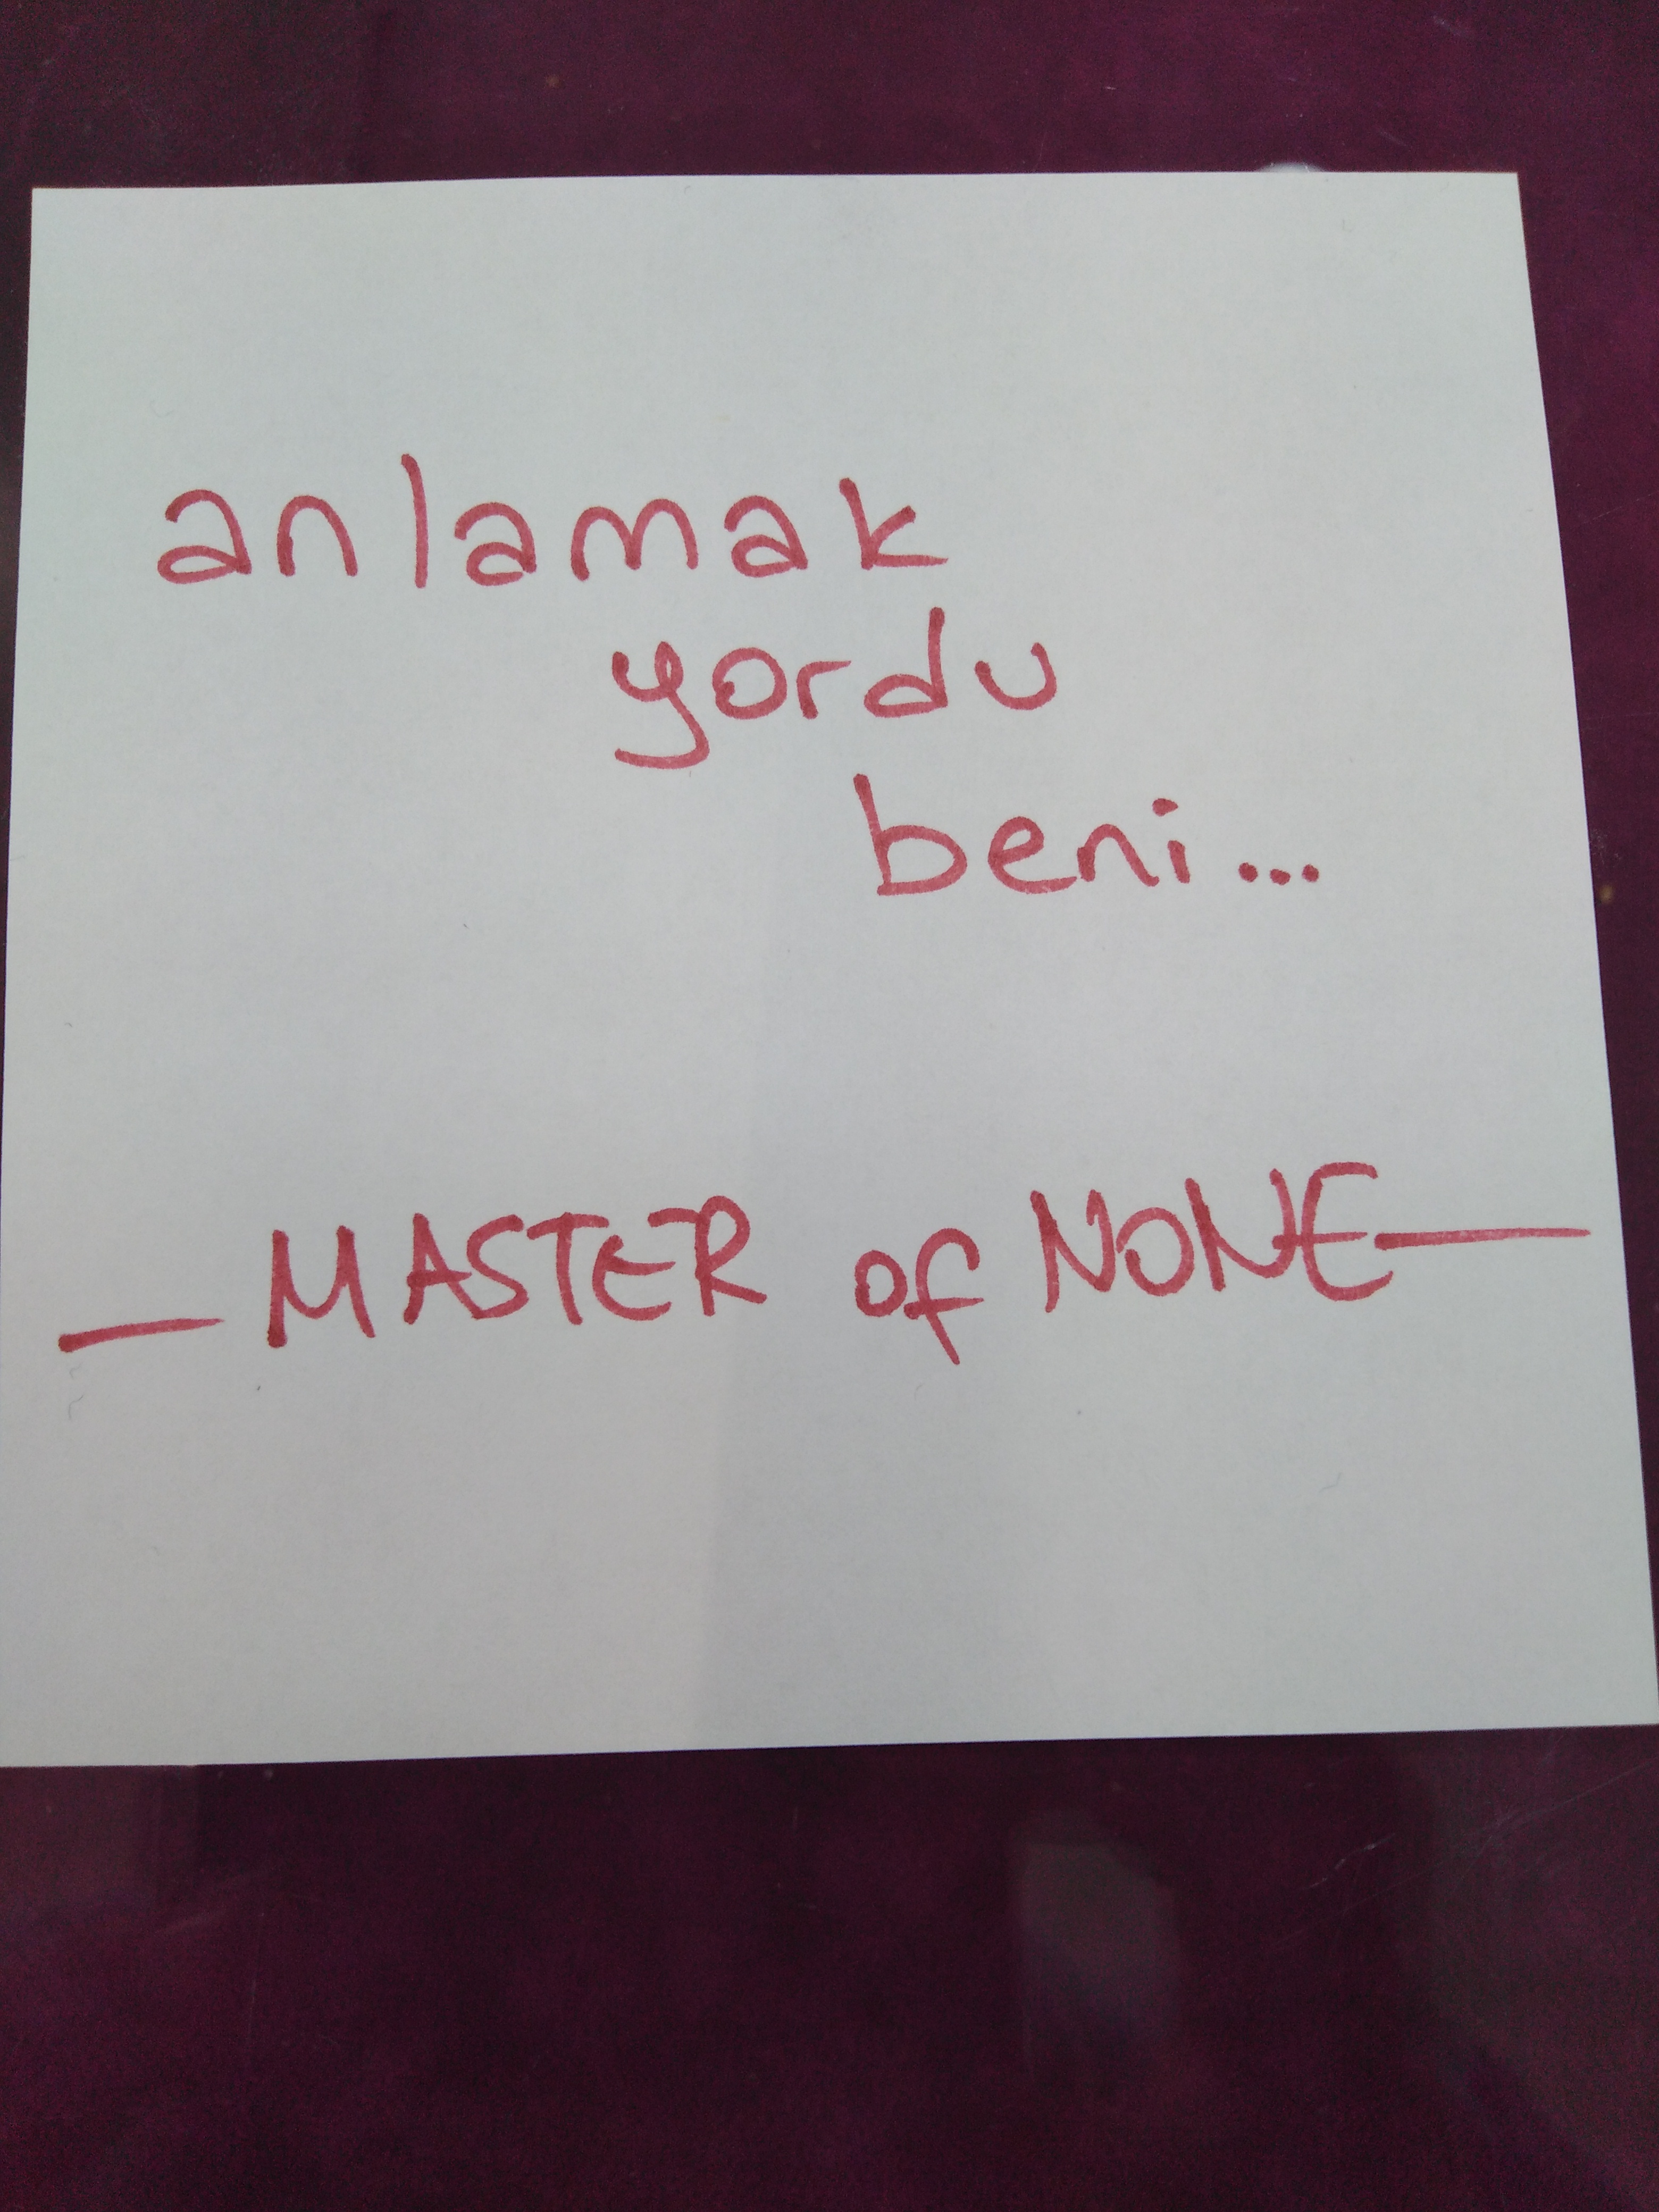 anlamak
yordu
beni...
—MASTER of NONE—